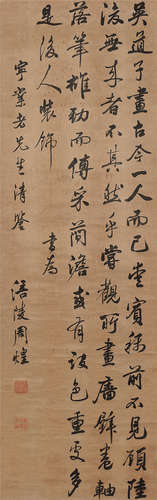 吳道子畫古今一人而已愛賓稱前不見顧陸
後無来者不其然乎嘗觀所畫牆壁卷軸
落筆雄勁而傅采簡澹或有設色重處多
是後人裝飾 書為
老先生清鑒
涪陵周煌